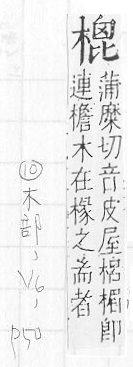 㮰
蒲糜切音皮屋梠楣即
連檐木在椽之耑者
⑩木部,V6,
p50